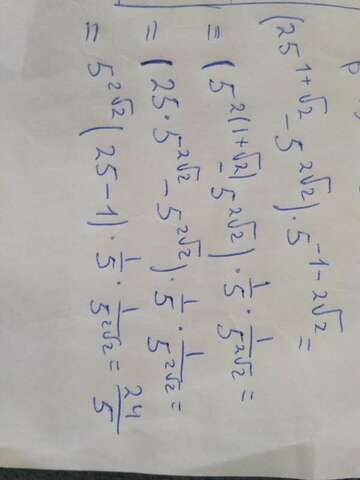 (25^{1+√2} - 5^{2√2}) · 5^{-1-2√2} =
= (5^{2(1+√2)} - 5^{2√2}) · \frac{1}{5} · \frac{1}{5^{2√2}} =
= (25 · 5^{2√2} - 5^{2√2}) · \frac{1}{5} · \frac{1}{5^{2√2}} =
= 5^{2√2} (25-1) · \frac{1}{5} · \frac{1}{5^{2√2}} = \frac{24}{5}